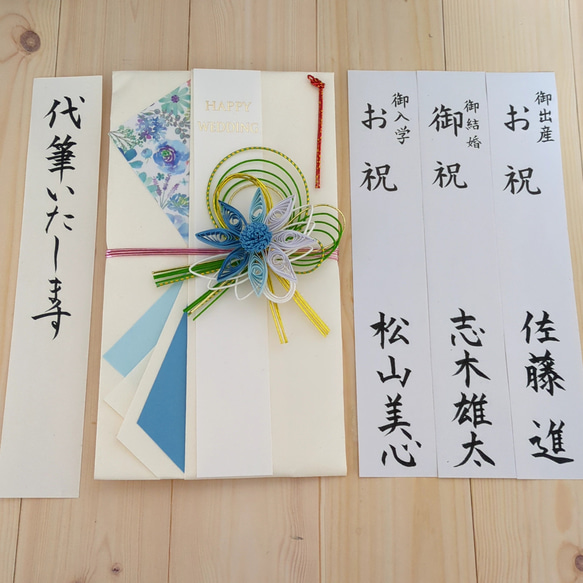 代筆いたします
HAPPY
WEDDING
御出産
お祝
佐藤 進
御結婚
御祝
志木雄太
御入学
お祝
松山美心